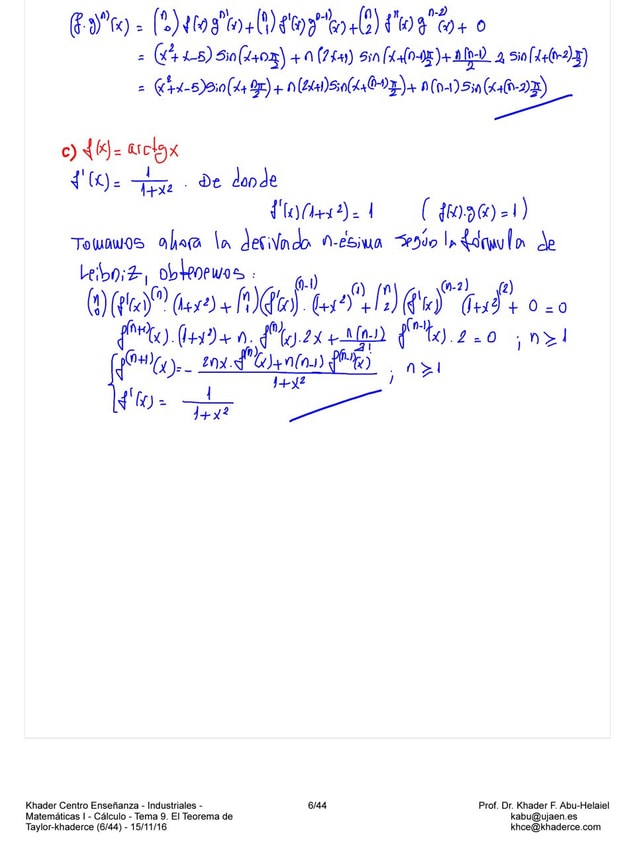 (f·g)ⁿ⁾(x) = (n 0) f(x) gⁿ⁾(x) + (n 1) f'(x) gⁿ⁻¹⁾(x) + (n 2) f''(x) gⁿ⁻²⁾(x) + 0
= (x²+x-5) sin(x+nπ/2) + n(2x+1) sin(x+(n-1)π/2) + n(n-1)/2 2 sin(x+(n-2)π/2)
= (x²+x-5) sin(x+nπ/2) + n(2x+1) sin(x+(n-1)π/2) + n(n-1) sin(x+(n-2)π/2)
c) f(x) = arctg x
f'(x) = 1/(1+x²) . De donde
f'(x)(1+x²) = 1 ( f(x).g(x) = 1 )
Tomamos ahora la derivada n-ésima según la fórmula de
Leibniz, obtenemos :
(n 0)(f'(x))⁽ⁿ⁾.(1+x²) + (n 1)(f'(x))⁽ⁿ⁻¹⁾.(1+x²)⁽¹⁾ + (n 2)(f'(x))⁽ⁿ⁻²⁾(1+x²)⁽²⁾ + 0 = 0
f⁽ⁿ⁺¹⁾(x).(1+x²) + n. f⁽ⁿ⁾(x).2x + n(n-1)/2! f⁽ⁿ⁻¹⁾(x).2 = 0 ; n ≥ 1
{ f⁽ⁿ⁺¹⁾(x) = - (2nx.f⁽ⁿ⁾(x) + n(n-1) f⁽ⁿ⁻¹⁾(x))/(1+x²) ; n ≥ 1
f'(x) = 1/(1+x²)
Khader Centro Enseñanza - Industriales - 6/44 Prof. Dr. Khader F. Abu-Helaiel
Matemáticas I - Cálculo - Tema 9. El Teorema de kabu@ujaen.es
Taylor-khaderce (6/44) - 15/11/16 khce@khaderce.com